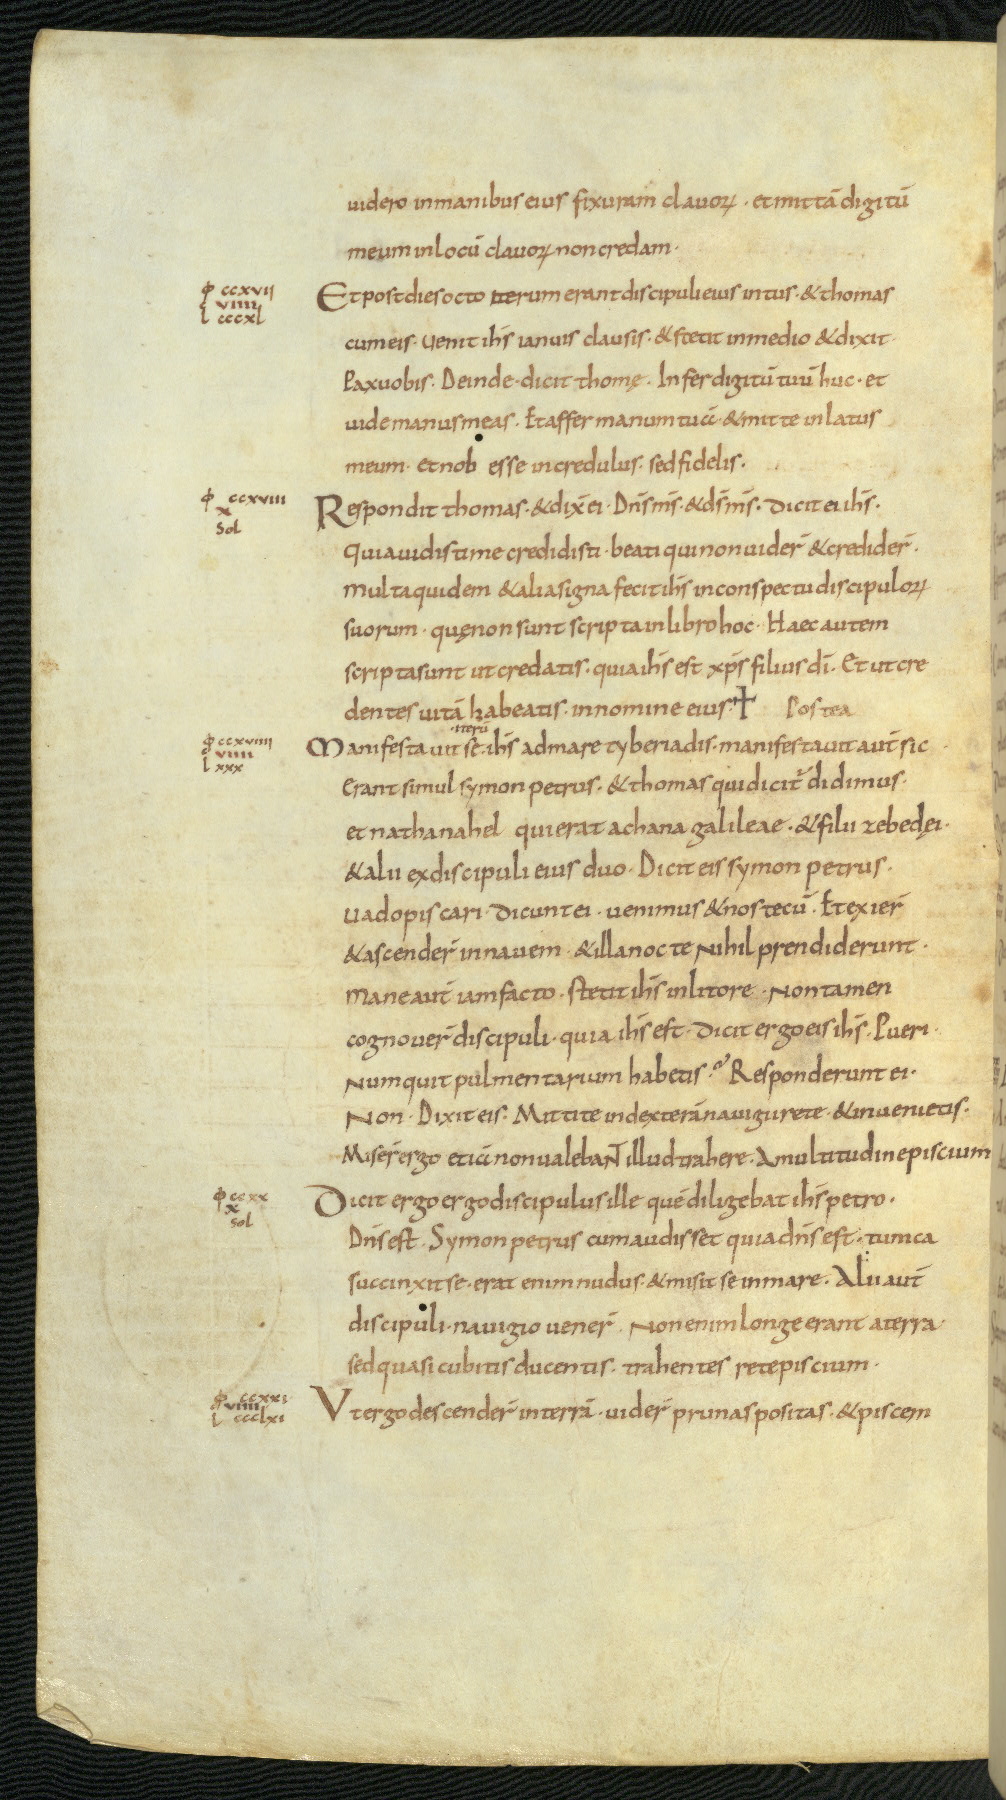 uidero inmanibus eius fixuram clauoꝝ · et mittā digitū
meum inlocū clauoꝝ non credam ·
ϕ ccxvii
viiii
l cccxl
Et post dies octo iterum erant discipuli eius intus · & thomas
cum eis · uenit ihs̄ ianuis clausis · & stetit inmedio & dixit
Pax uobis · Deinde · dicit thomę · Infer digitū tuū huc · et
uide manus meas · Et affer manum tuā · & mitte in latus
meum · et noli esse incredulus · sed fidelis ·
ϕ ccxviii
x
sol
Respondit thomas · & dix̄ ei · Dn̄s m̄s · & ds̄ m̄s · dicit ei ihs̄ ·
Quia uidisti me credidisti · beati qui non uider̄ & credider̄ ·
multa quidem & alia signa fecit ihs̄ inconspectu discipuloꝝ
suorum · quę non sunt scripta in libro hoc · Haec autem
scripta sunt ut credatis · quia ihs̄ est xp̄s filius dī · Et ut cre
dentes uitā habeatis · in nomine eius · ✝ Postea
ϕ ccxviiii
viiii
l xxx
iterū
Manifestauit se · ihs̄ ad mare tyberiadis · manifestauit aut̄ sic
Erant simul symon petrus · & thomas qui dicit᷑ didimus ·
et nathanahel qui erat achana galileae · & filii zebedęi ·
& alii ex discipuli eius duo · Dicit eis symon petrus ·
uado piscari · dicunt ei · uenimus & nos tecū · Et exier̄
& ascender̄ innauem · & illa nocte nihil prendiderunt ·
mane aut̄ iam facto · stetit ihs̄ in litore · Non tamen
cognouer̄ discipuli · quia ihs̄ est · dicit ergo eis ihs̄ · Pueri ·
Numquit pulmentarium habetis · Responderunt ei ·
Non · Dixit eis · Mittite in dexterā nauigii rete · & inuenietis ·
Miser̄ ergo et iā non ualeban̄t illud trahere · Amultitudine piscium
ϕ ccxx
x
sol
Dicit ergo ergo discipulus ille quē diligebat ihs̄ petro ·
Dn̄s est · Symon petrus cum audisset quia dn̄s est · tunica
succinxit se · erat enim nudus · & misit se inmare · Alii aut̄
discipuli · nauigio uener̄ · Non enim longe erant aterra ·
sed quasi cubitis ducentis · trahentes rete piscium ·
ϕ ccxxi
viiii
l ccclxi
Vt ergo descender̄ in terrā · uider̄ prunas positas · & piscem